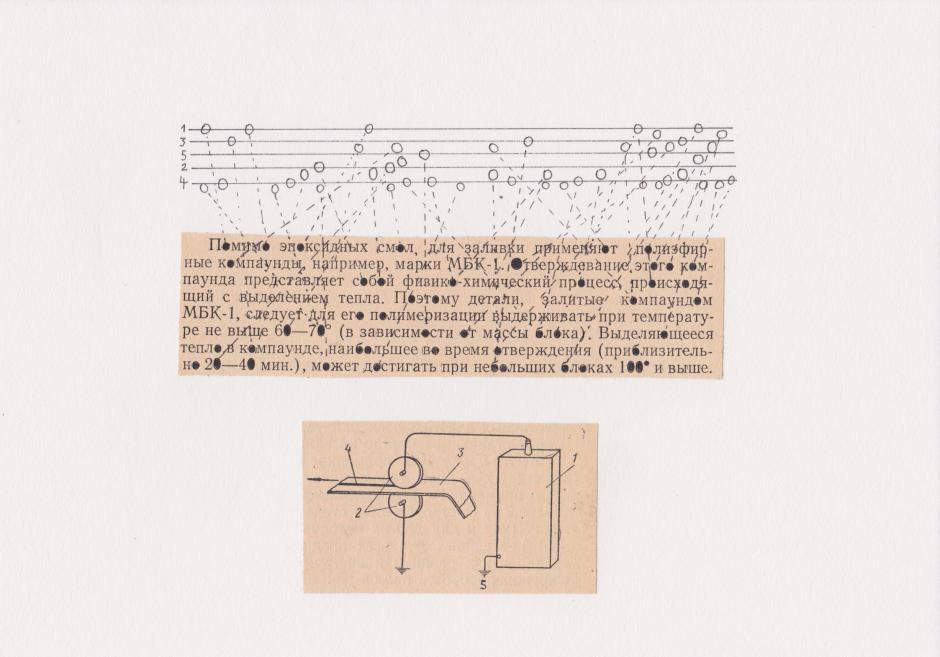 1
3
5
2
4
Помимо эпоксидных смол, для заливки применяют полиэфир-
ные компаунды, например, марки МБК-1. Отверждевание этого ком-
паунда представляет собой физико-химический процесс, происходя-
щий с выделением тепла. Поэтому детали, залитые компаундом
МБК-1, следует для его полимеризации выдерживать при температу-
ре не выше 60—70° (в зависимости от массы блока). Выделяющееся
тепло в компаунде, наибольшее во время отверждения (приблизитель-
но 20—40 мин.), может достигать при небольших блоках 100° и выше.
4
3
1
2
5